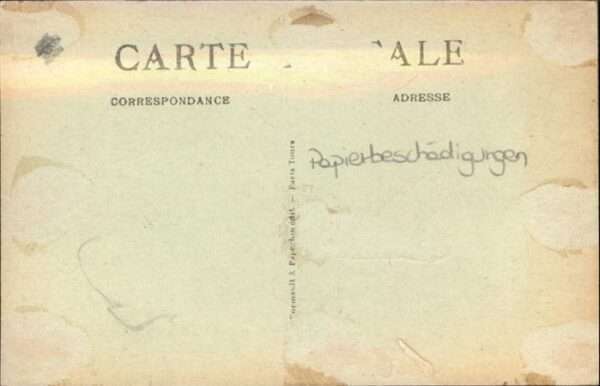 CARTE ALE
CORRESPONDANCE
ADRESSE
Papierbeschädigungen
édit. — Paris Tours